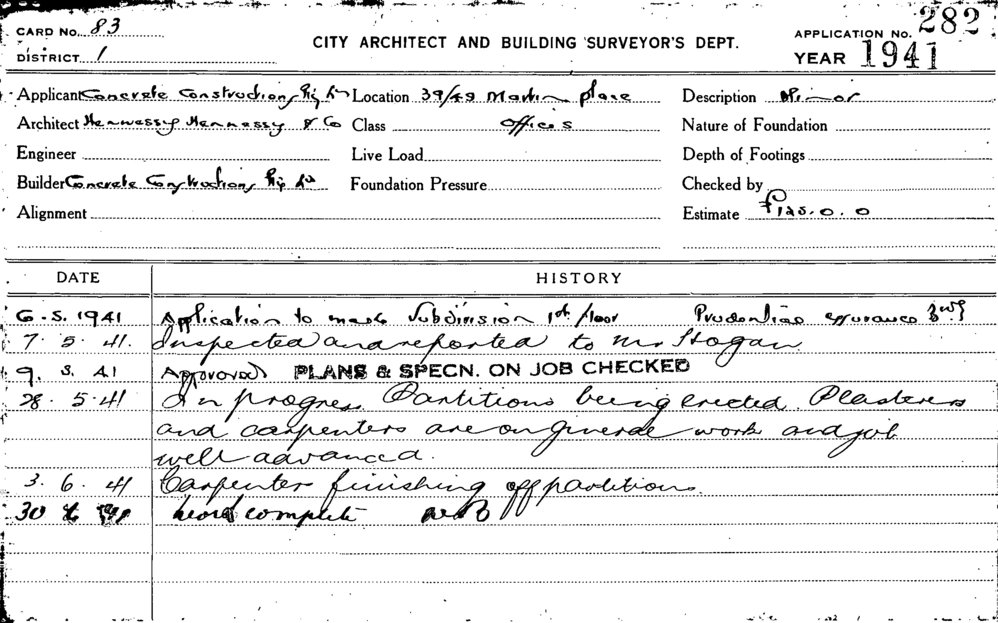 CARD No. 83
DISTRICT 1
CITY ARCHITECT AND BUILDING SURVEYOR'S DEPT.
APPLICATION No. 282
YEAR 1941
Applicant Concrete Constructions Pty Ltd Location 39/49 Martin place Description Minor
Architect Hennessy Hennessy & Co Class Offices Nature of Foundation
Engineer Live Load Depth of Footings
Builder Concrete Constructions Pty Ltd Foundation Pressure Checked by
Alignment Estimate £125.0.0
DATE HISTORY
6.5.1941 Application to make Subdivision 1st floor Prudential assurance
7.5.41. Inspected and reported to Mr Hogan
9.5.41 Approved PLANS & SPECN. ON JOB CHECKED
28.5.41 In progress. Partitions being erected. Plasterers
and carpenters are on general work and job
well advanced.
3.6.41 Carpenters finishing off partitions.
30 6 41 work complete